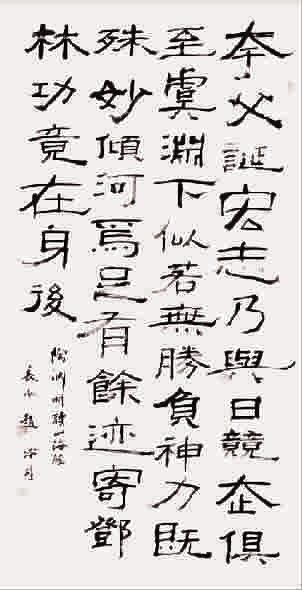 夸父誕宏志乃與日競走俱
至虞淵下似若無勝負神力既
殊妙傾河焉足有餘迹寄鄧
林功竟在身後
陶淵明讀山海經
長水趙冷月